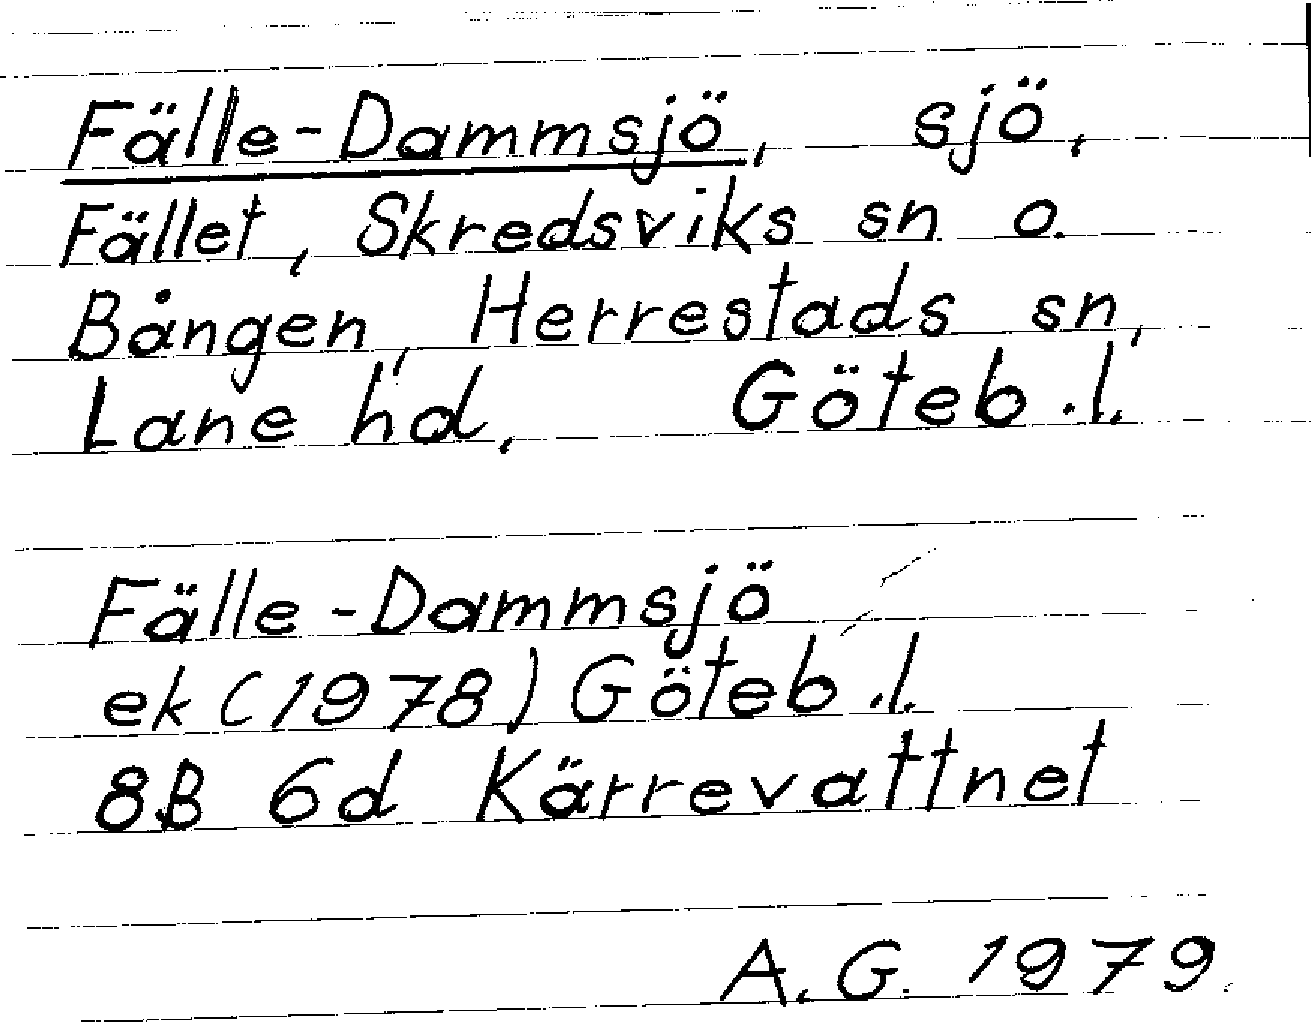 Fälle-Dammsjö, sjö,
Fället, Skredsviks sn o.
Bången, Herrestads sn,
Lane hd, Göteb.l.
Fälle-Dammsjö
ek (1978) Göteb.l.
8B 6d Kärrevattnet
A.G. 1979.